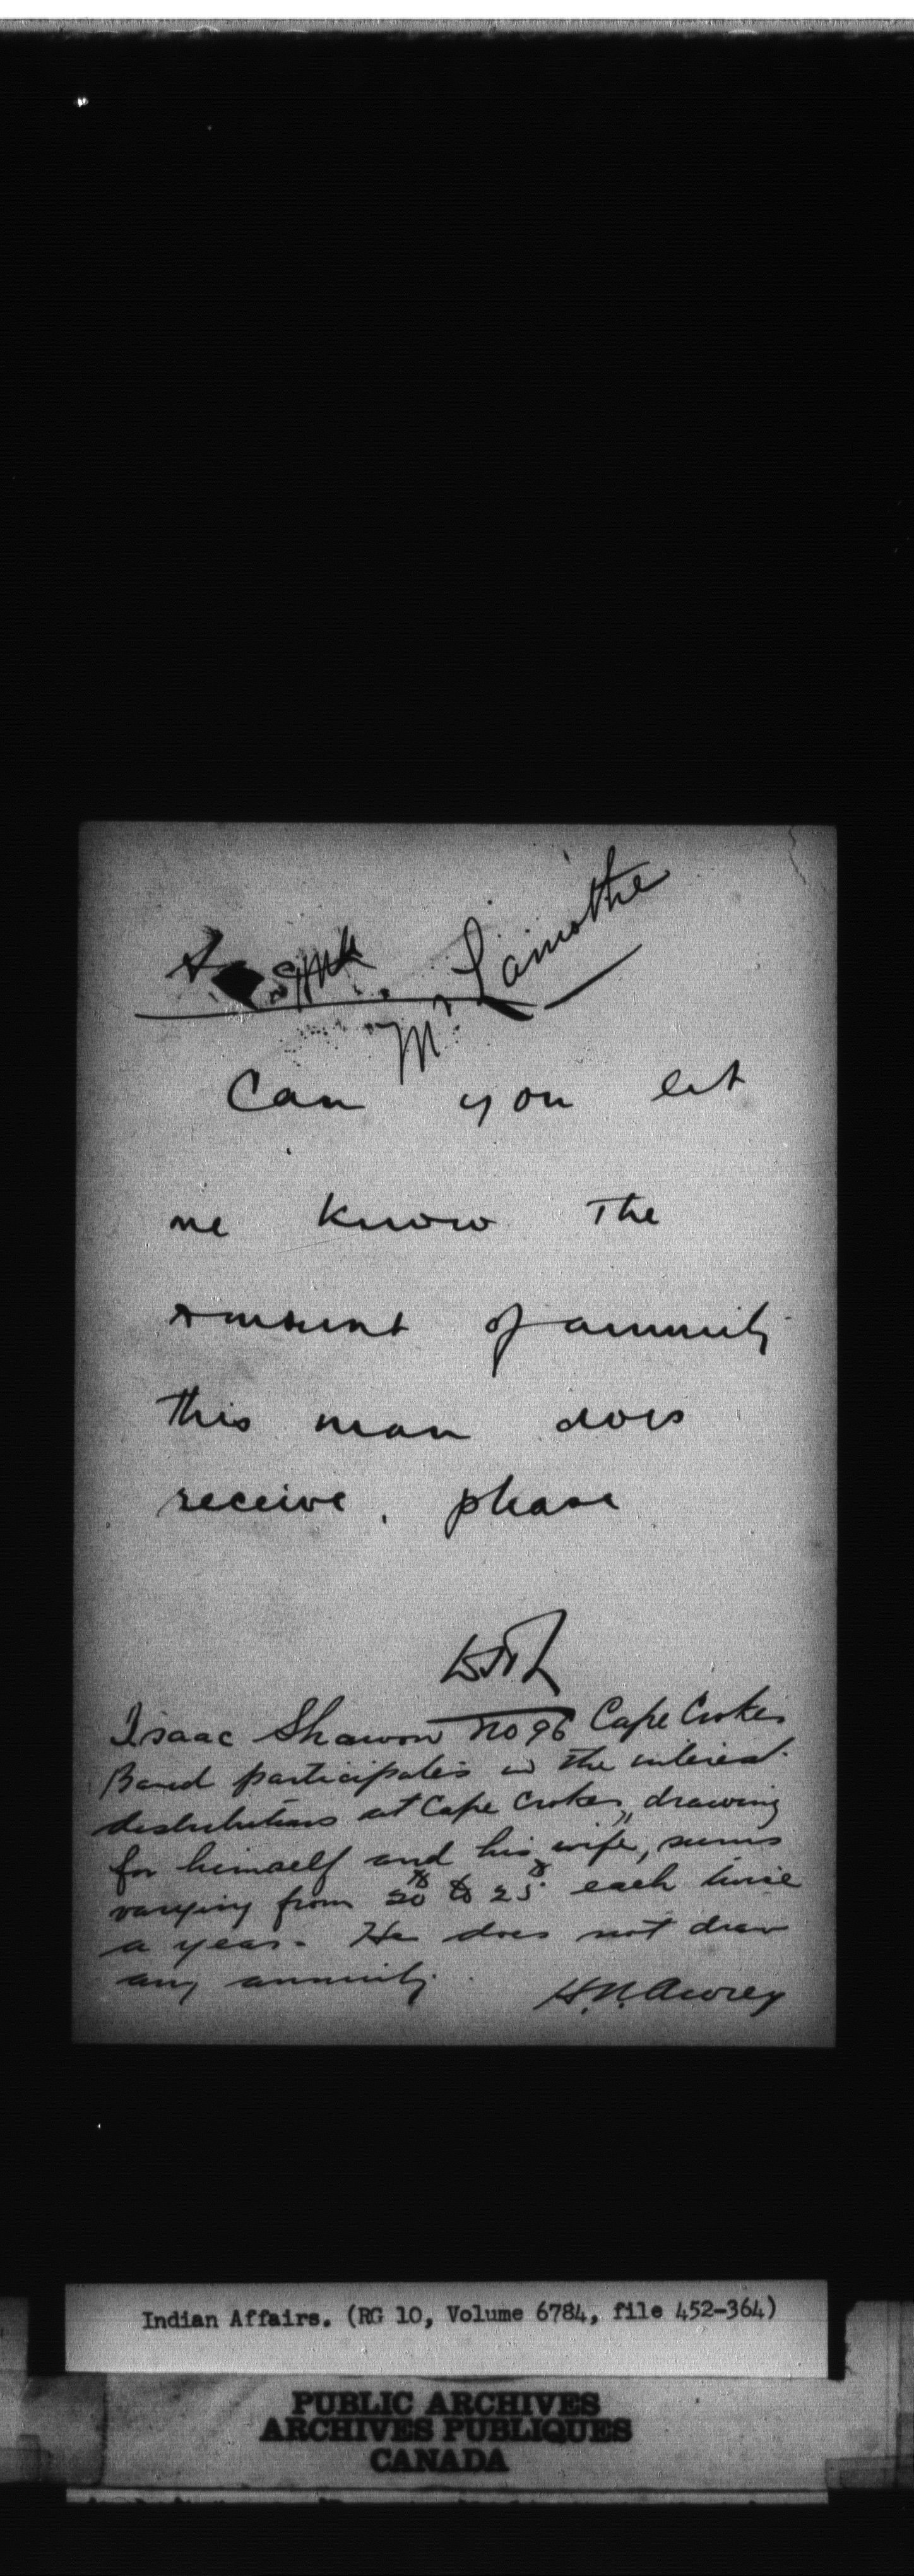 Mr Lamothe
Can you let
me know the
amount of annuity
this man does
receive, please
Isaac Shawon no 96 Cape Croker
Band participates in the interest
distributions at Cape Croker, drawing
for himself and his wife, sums
varying from 20$ to 25$ each twice
a year. He does not draw
any annuity.
H.N. Awrey
Indian Affairs. (RG 10, Volume 6784, file 452-364)
PUBLIC ARCHIVES
ARCHIVES PUBLIQUES
CANADA